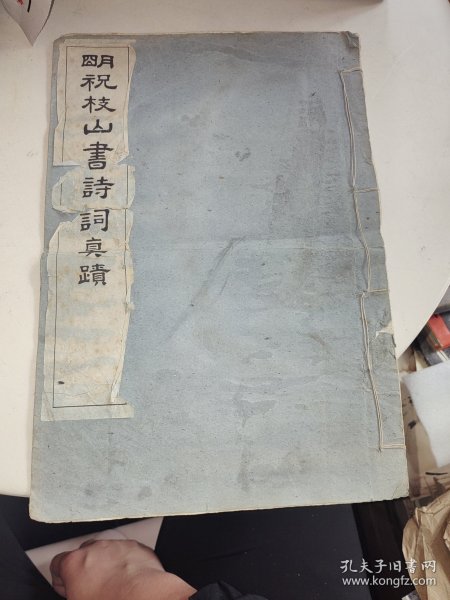 明祝枝山書詩詞真蹟
孔夫子旧书网
www.kongfz.com